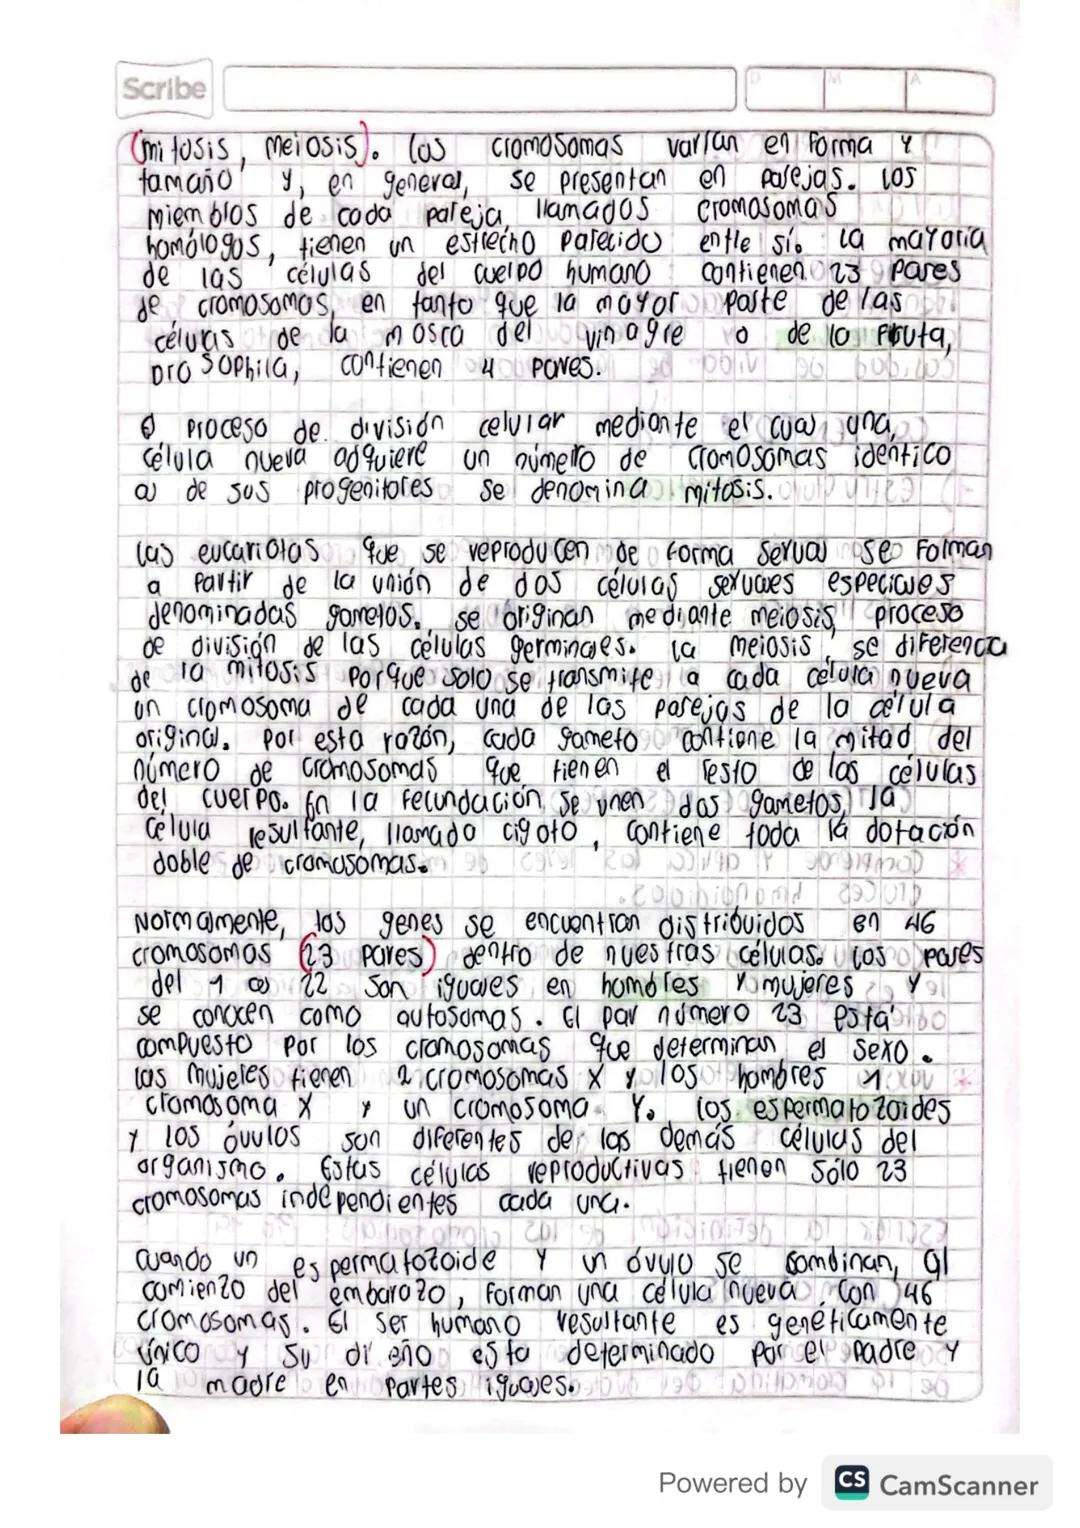 Scribe
D M A
(mitosis, meiosis). Los cromosomas varían en forma y
tamaño y, en general, se presentan en parejas. Los
miembros de cada pareja, llamados cromosomas
homólogos, tienen un estrecho parecido entre sí. La mayoría
de las células del cuerpo humano contienen 23 pares
de cromosomas, en tanto que la mayor parte de las
células de la mosca del vinagre o de la fruta,
Drosophila, contienen 4 pares.
El proceso de división celular mediante el cual una
célula nueva adquiere un número de cromosomas identico
al de sus progenitores se denomina mitosis.
Las eucariotas que se reproducen de forma sexual se forman
a partir de la unión de dos células sexuales especiales
denominadas gametos. se originan mediante meiosis, proceso
de división de las células germinales. La meiosis, se diferencia
de la mitosis porque solo se transmite a cada célula nueva
un cromosoma de cada una de las parejas de la célula
original. Por esta razón, cada gameto contiene la mitad del
número de cromosomas que tienen el resto de las células
del cuerpo. En la fecundación se unen dos gametos, la
célula resultante, llamada cigoto, contiene toda la dotación
doble de cromosomas.
Normalmente, los genes se encuentran distribuidos en 46
cromosomas (23 pares) dentro de nuestras células. Los pares
del 1 al 22 son iguales en hombres y mujeres y
se conocen como autosomas. El par número 23 está
compuesto por los cromosomas que determinan el sexo.
Las mujeres tienen 2 cromosomas X y los hombres 1
cromosoma X y un cromosoma Y. Los espermatozoides
y los óvulos son diferentes de las demás células del
organismo. Estas células reproductivas tienen sólo 23
cromosomas independientes cada una.
Cuando un espermatozoide y un óvulo se combinan, al
comienzo del embarazo, forman una célula nueva con 46
cromosomas. El ser humano resultante es genéticamente
único y su di eño esta determinado por el padre y
la madre en partes iguales.
Powered by CS CamScanner